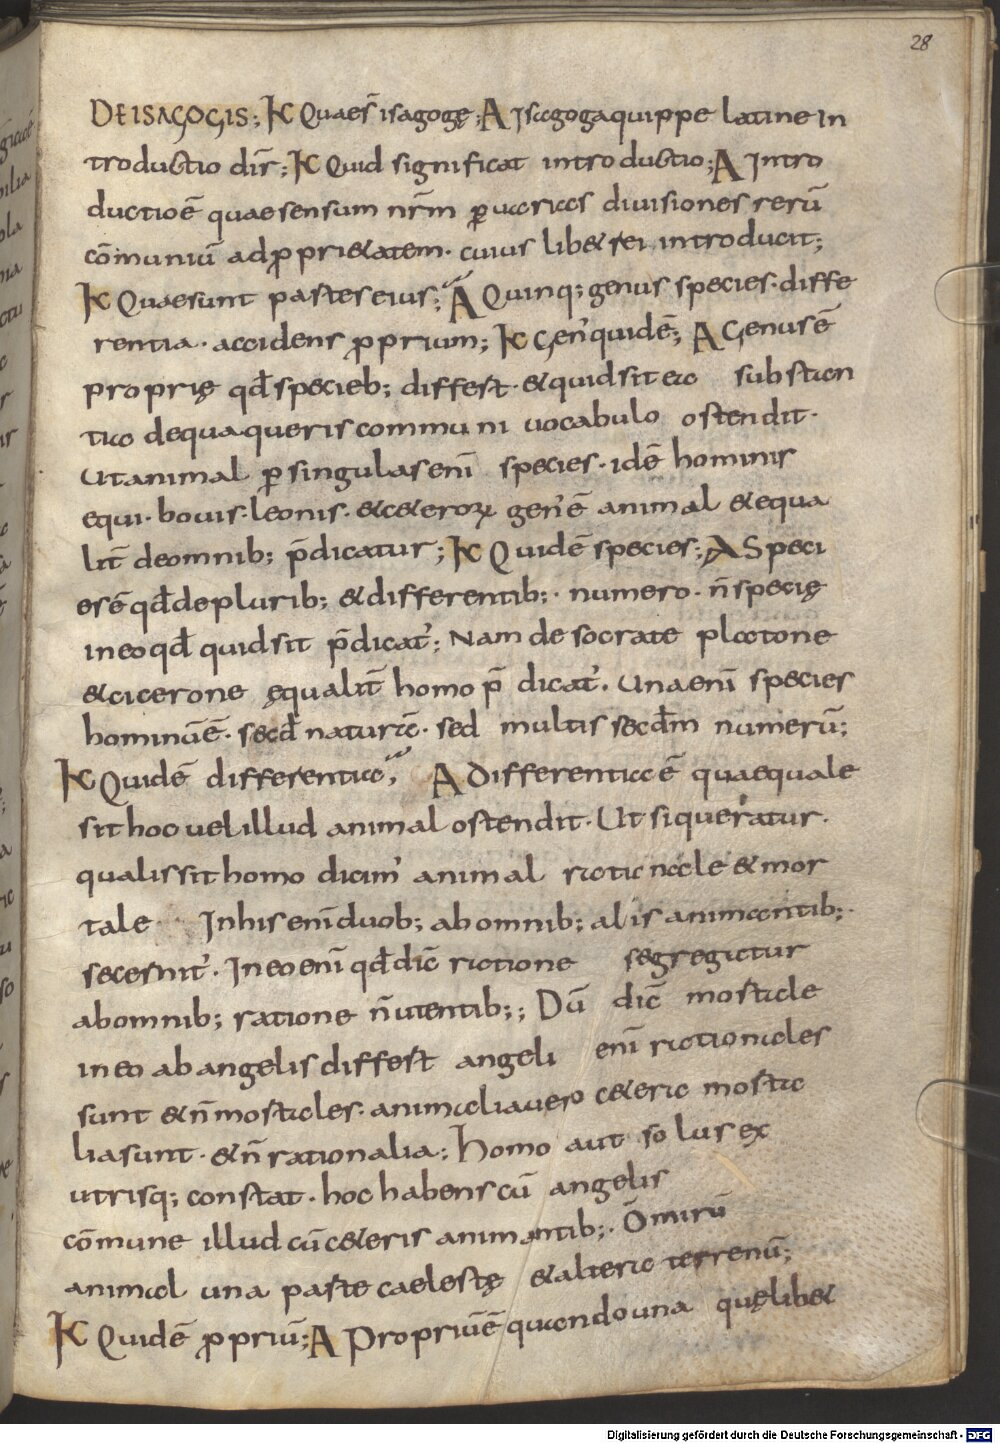 28
DE ISAGOGIS; K Quaes̄ isagogę; A Isagoga quippe latine in
troductio dir̄; K Quid significat introductio; A Intro
ductio ē quae sensum nr̄m ꝑ uarias diuisiones rerū
cōmuniū ad ꝓprietatem · cuius libet rei introducit;
K Quae sunt partes eius; A Quinq; genus species · diffe
rentia · accidens ꝓprium; K Gen' quid ē; A Genus ē
proprię qđ specieb; differt · & quid sit ea substan
tia de qua queris communi uocabulo ostendit ·
Ut animal ꝑ singulas enī species · idē hominis
equi · bouis · leonis · & ceteroꝝ gen' ē animal & equa
lit̄ de omnib; p̄dicatur; K Quid ē species; A Speci
es ē qđ de plurib; & differentib; · numero · n̄ specię
in eo qđ quid sit p̄dicat'; Nam de socrate platone
& cicerone ęqualit̄ homo p̄dicat'. Una enī species
hominū ē · secđ naturā · sed multis secđm numerū;
K Quid ē differentia; A Differentia ē quae quale
sit hoc uel illud animal ostendit · Ut si queratur ·
qualis sit homo dicim' animal rationale & mor
tale In his enī duob; ab omnib; aliis animantib; ·
secernit' · In eo enī qđ dic̄ ratione segregatur
ab omnib; ratione n̄ utentib;; Dū dic̄ mortale
in eo ab angelis differt angeli enī rationales
sunt & n̄ mortales · animalia uero cetera morta
lia sunt · & n̄ rationalia; Homo aut solus ex
utrisq; constat · hoc habens cū angelis
cōmune illud cū ceteris animantib; · O mirū
animal una parte caelestę & altera terrenū;
K Quid ē ꝓpriū; A Propriū ē quando una quęlibet
Digitalisierung gefördert durch die Deutsche Forschungsgemeinschaft - DFG